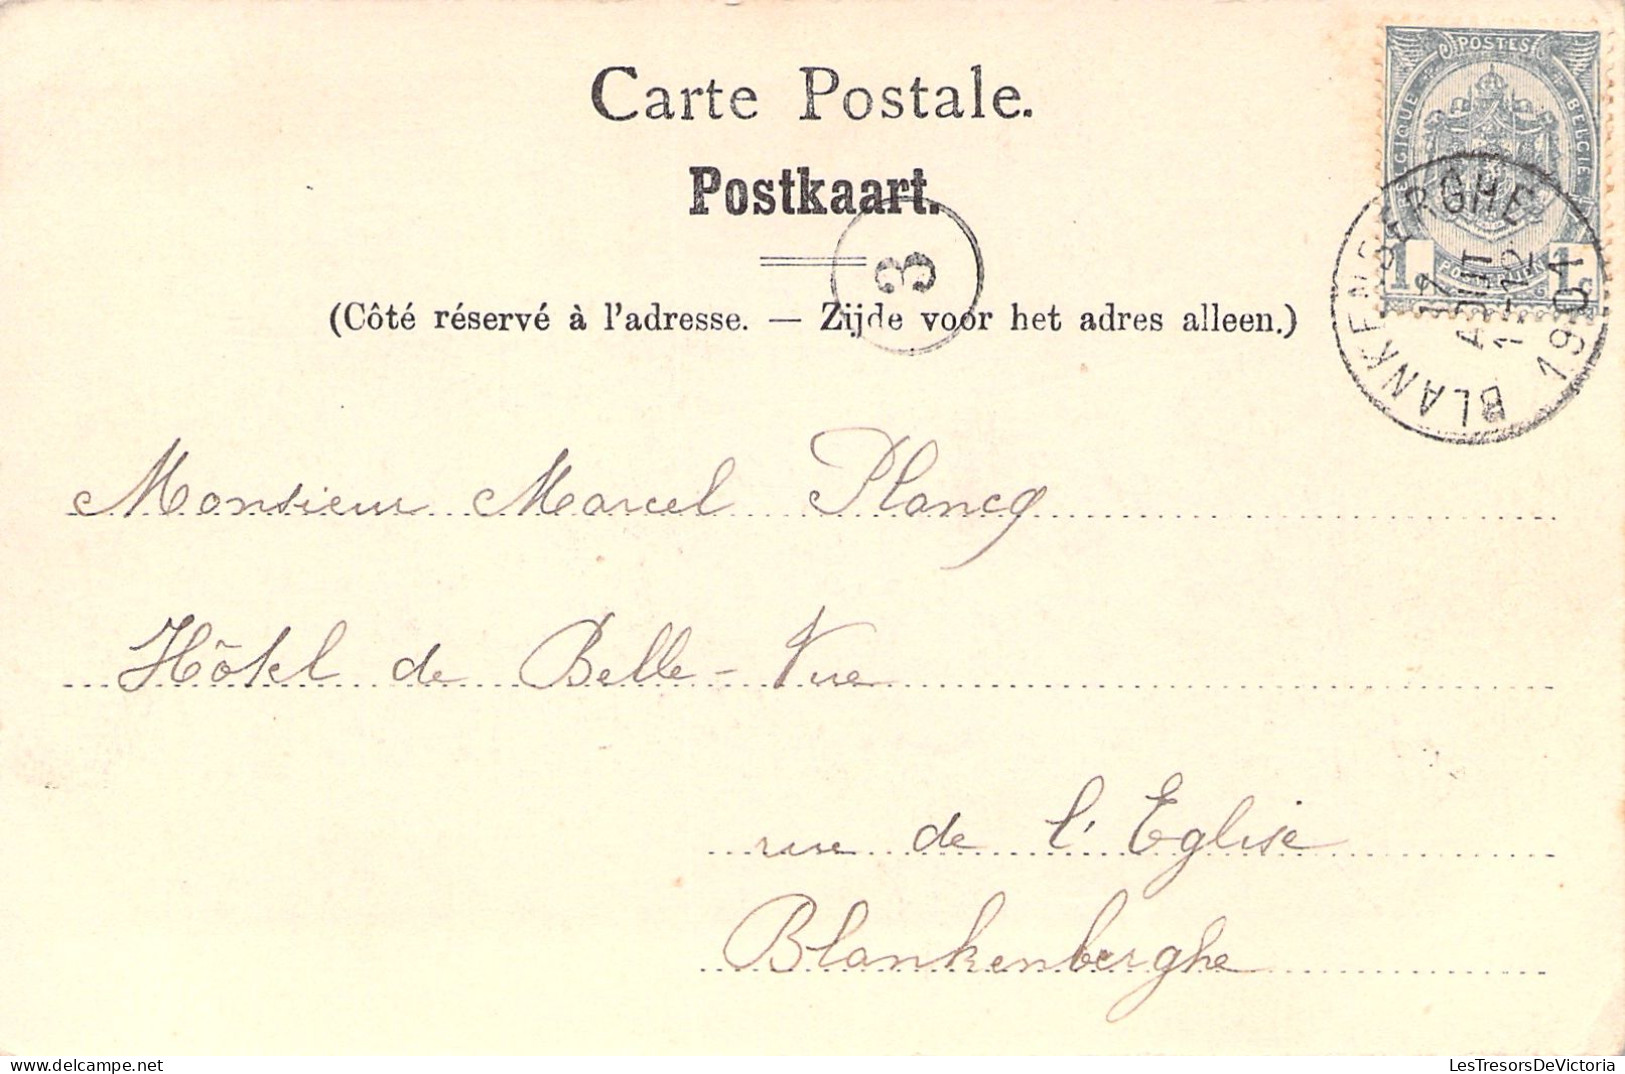 Carte Postale.
Postkaart.
3
(Côté réservé à l'adresse. — Zijde voor het adres alleen.)
POSTES
BELGIQUE
BELGIE
1c 1c
BLANKENBERGHE
17
AOUT
11-12
1901
Monsieur Marcel Plancq
Hôtel de Belle-Vue
rue de l'Eglise
Blankenberghe
LesTresorsDeVictoria